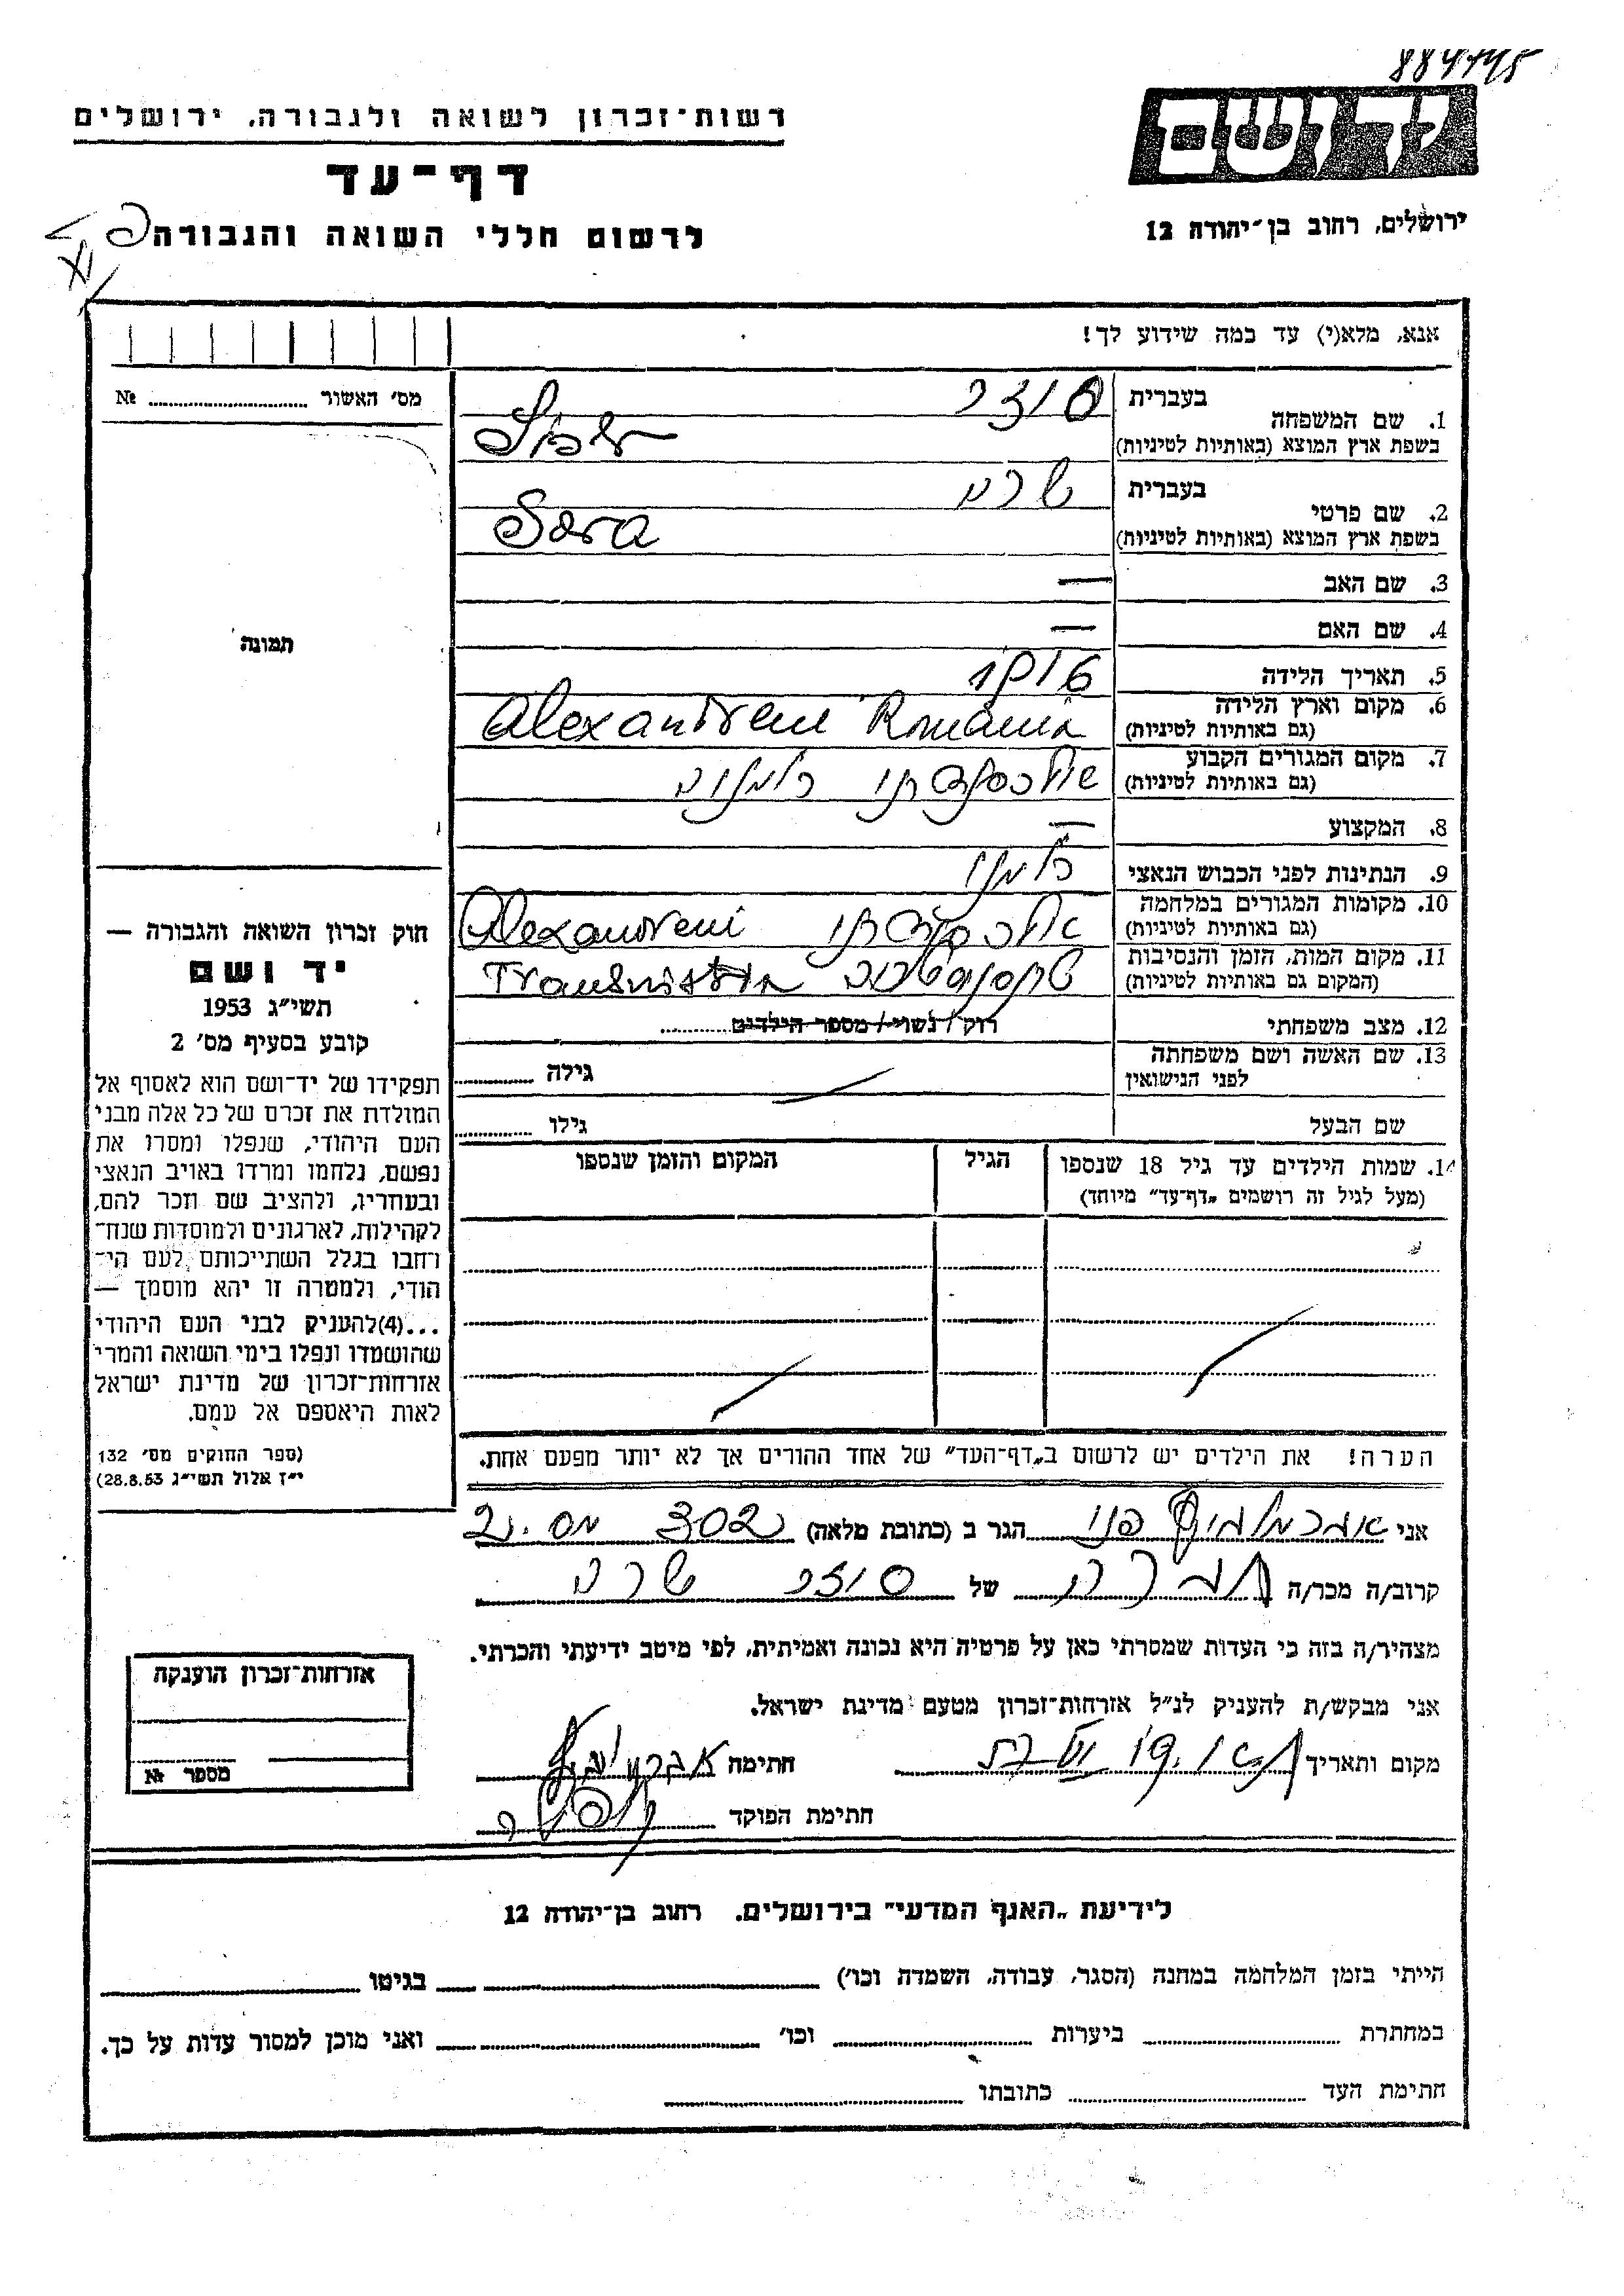 רשות־זכרון לשואה ולגבורה, ירושלים
דף־עד
לרשום חללי השואה והגבורה
יד ושם
ירושלים, רחוב בן־יהודה 12
אנא, מלא(י) עד כמה שידוע לך!
1. שם המשפחה
בעברית
בשפת ארץ המוצא (באותיות לטיניות)
2. שם פרטי
בעברית שרה
בשפת ארץ המוצא (באותיות לטיניות) Sara
3. שם האב —
4. שם האם —
5. תאריך הלידה
6. מקום וארץ הלידה
(גם באותיות לטיניות) Alexandreni Romania
7. מקום המגורים הקבוע
(גם באותיות לטיניות) רומניה
8. המקצוע —
9. הנתינות לפני הכבוש הנאצי רומני
10. מקומות המגורים במלחמה
(גם באותיות לטיניות) Alexandreni
11. מקום המות, הזמן והנסיבות
(המקום גם באותיות לטיניות) טרנסניסטריה
12. מצב משפחתי רווק / נשוי / מספר הילדים
13. שם האשה ושם משפחתה
לפני הנישואין
גילה
שם הבעל גילו
14. שמות הילדים עד גיל 18 שנספו
(מעל לגיל זה רושמים "דף־עד" מיוחד)
הגיל
המקום והזמן שנספו
הערה! את הילדים יש לרשום ב"דף־העד" של אחד ההורים אך לא יותר מפעם אחת.
אני הגר ב (כתובת מלאה)
קרוב/ה מכר/ה חברה של שרה
מצהיר/ה בזה כי העדות שמסרתי כאן על פרטיה היא נכונה ואמיתית, לפי מיטב ידיעתי והכרתי.
אני מבקש/ת להעניק לנ"ל אזרחות־זכרון מטעם מדינת ישראל.
מקום ותאריך חתימה
חתימת הפוקד
מס' האשור №
תמונה
חוק זכרון השואה והגבורה —
יד ושם
תשי"ג 1953
קובע בסעיף מס' 2
תפקידו של יד־ושם הוא לאסוף אל
המולדת את זכרם של כל אלה מבני
העם היהודי, שנפלו ומסרו את
נפשם, נלחמו ומרדו באויב הנאצי
ובעוזריו, ולהציב שם וזכר להם,
לקהילות, לארגונים ולמוסדות שנח־
רחבו בגלל השתייכותם לעם הי־
הודי, ולמטרה זו יהא מוסמך —
...(4) להעניק לבני העם היהודי
שהושמדו ונפלו בימי השואה והמרי
אזרחות־זכרון של מדינת ישראל
לאות היאספם אל עמם.
(ספר החוקים מס' 132
י"ז אלול תשי"ג 28.8.53)
אזרחות־זכרון הוענקה
מספר №
לידיעת "האגף המדעי" בירושלים. רחוב בן־יהודה 12
הייתי בזמן המלחמה במחנה (הסגר, עבודה, השמדה וכו') בגיטו
במחתרת ביערות וכו' ואני מוכן למסור עדות על כך.
חתימת העד כתובתו